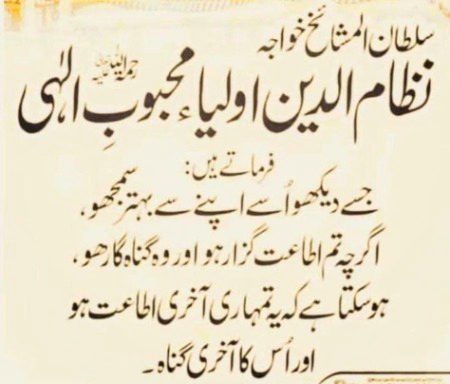 سلطان المشائخ خواجہ
نظام الدین اولیاء محبوبِ الٰہی رحمۃ اللہ علیہ
فرماتے ہیں:
جسے دیکھو اُسے اپنے سے بہتر سمجھو،
اگرچہ تم اطاعت گزار ہو اور وہ گناہ گار ھو،
ہو سکتا ہے کہ یہ تمہاری آخری اطاعت ہو
اور اُس کا آخری گناہ۔